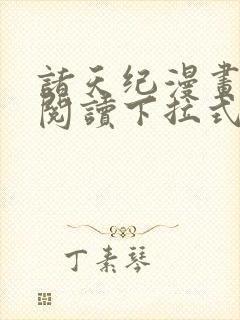 諸天纪漫畫
閱讀下拉式
丁素琴